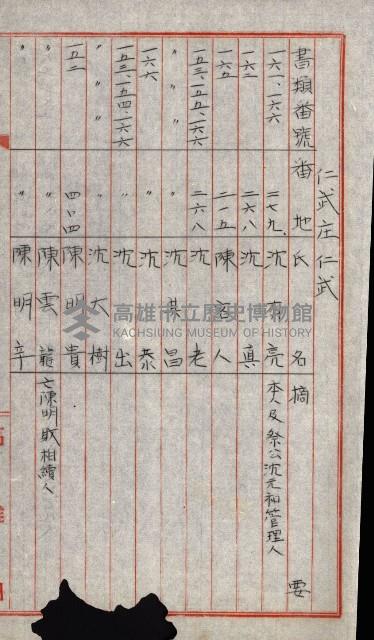 仁武庄仁武
書類番號 番地 氏名 摘要
一六一、一六六 二七九 沈 亮 本人及祭公沈元和管理人
一六二 二六八 沈 真
一六五 二一五 陳 人
一五三、一五五、一六六 二六八 沈 老
〃 〃 沈其昌
一六六 〃 沈 泰
一五三、一五四、一六六 〃 沈 出
〃 〃 沈大樹
一五二 四〇四 陳明貴
〃 〃 陳雲龍 亡陳明 相續人
〃 〃 陳明辛
高雄市立歷史博物館
KAOHSIUNG MUSEUM OF HISTORY